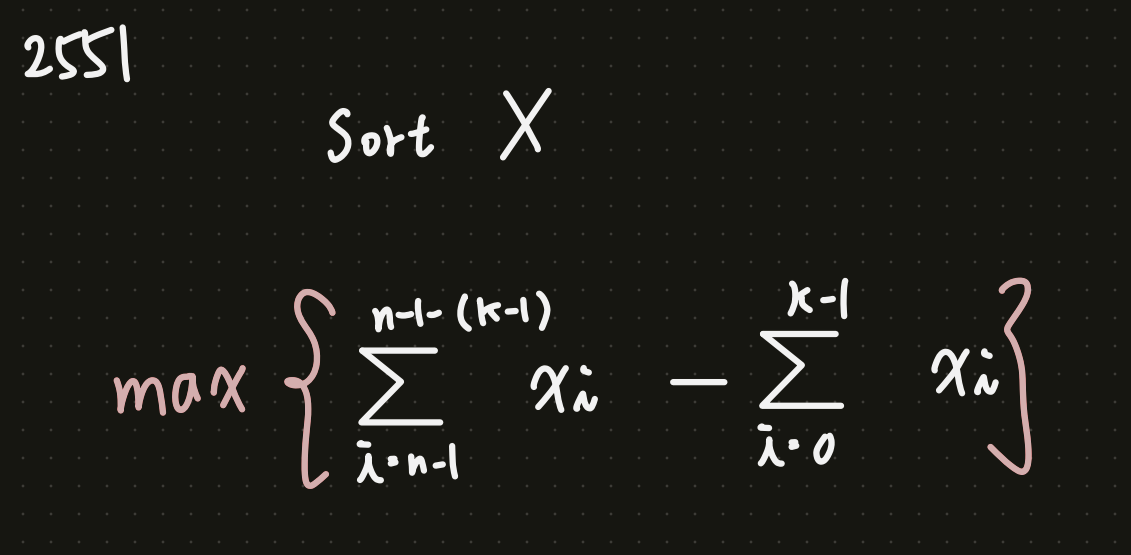 2551
Sort X
max { ∑_{i=n-1}^{n-1-(k-1)} x_i − ∑_{i=0}^{k-1} x_i }